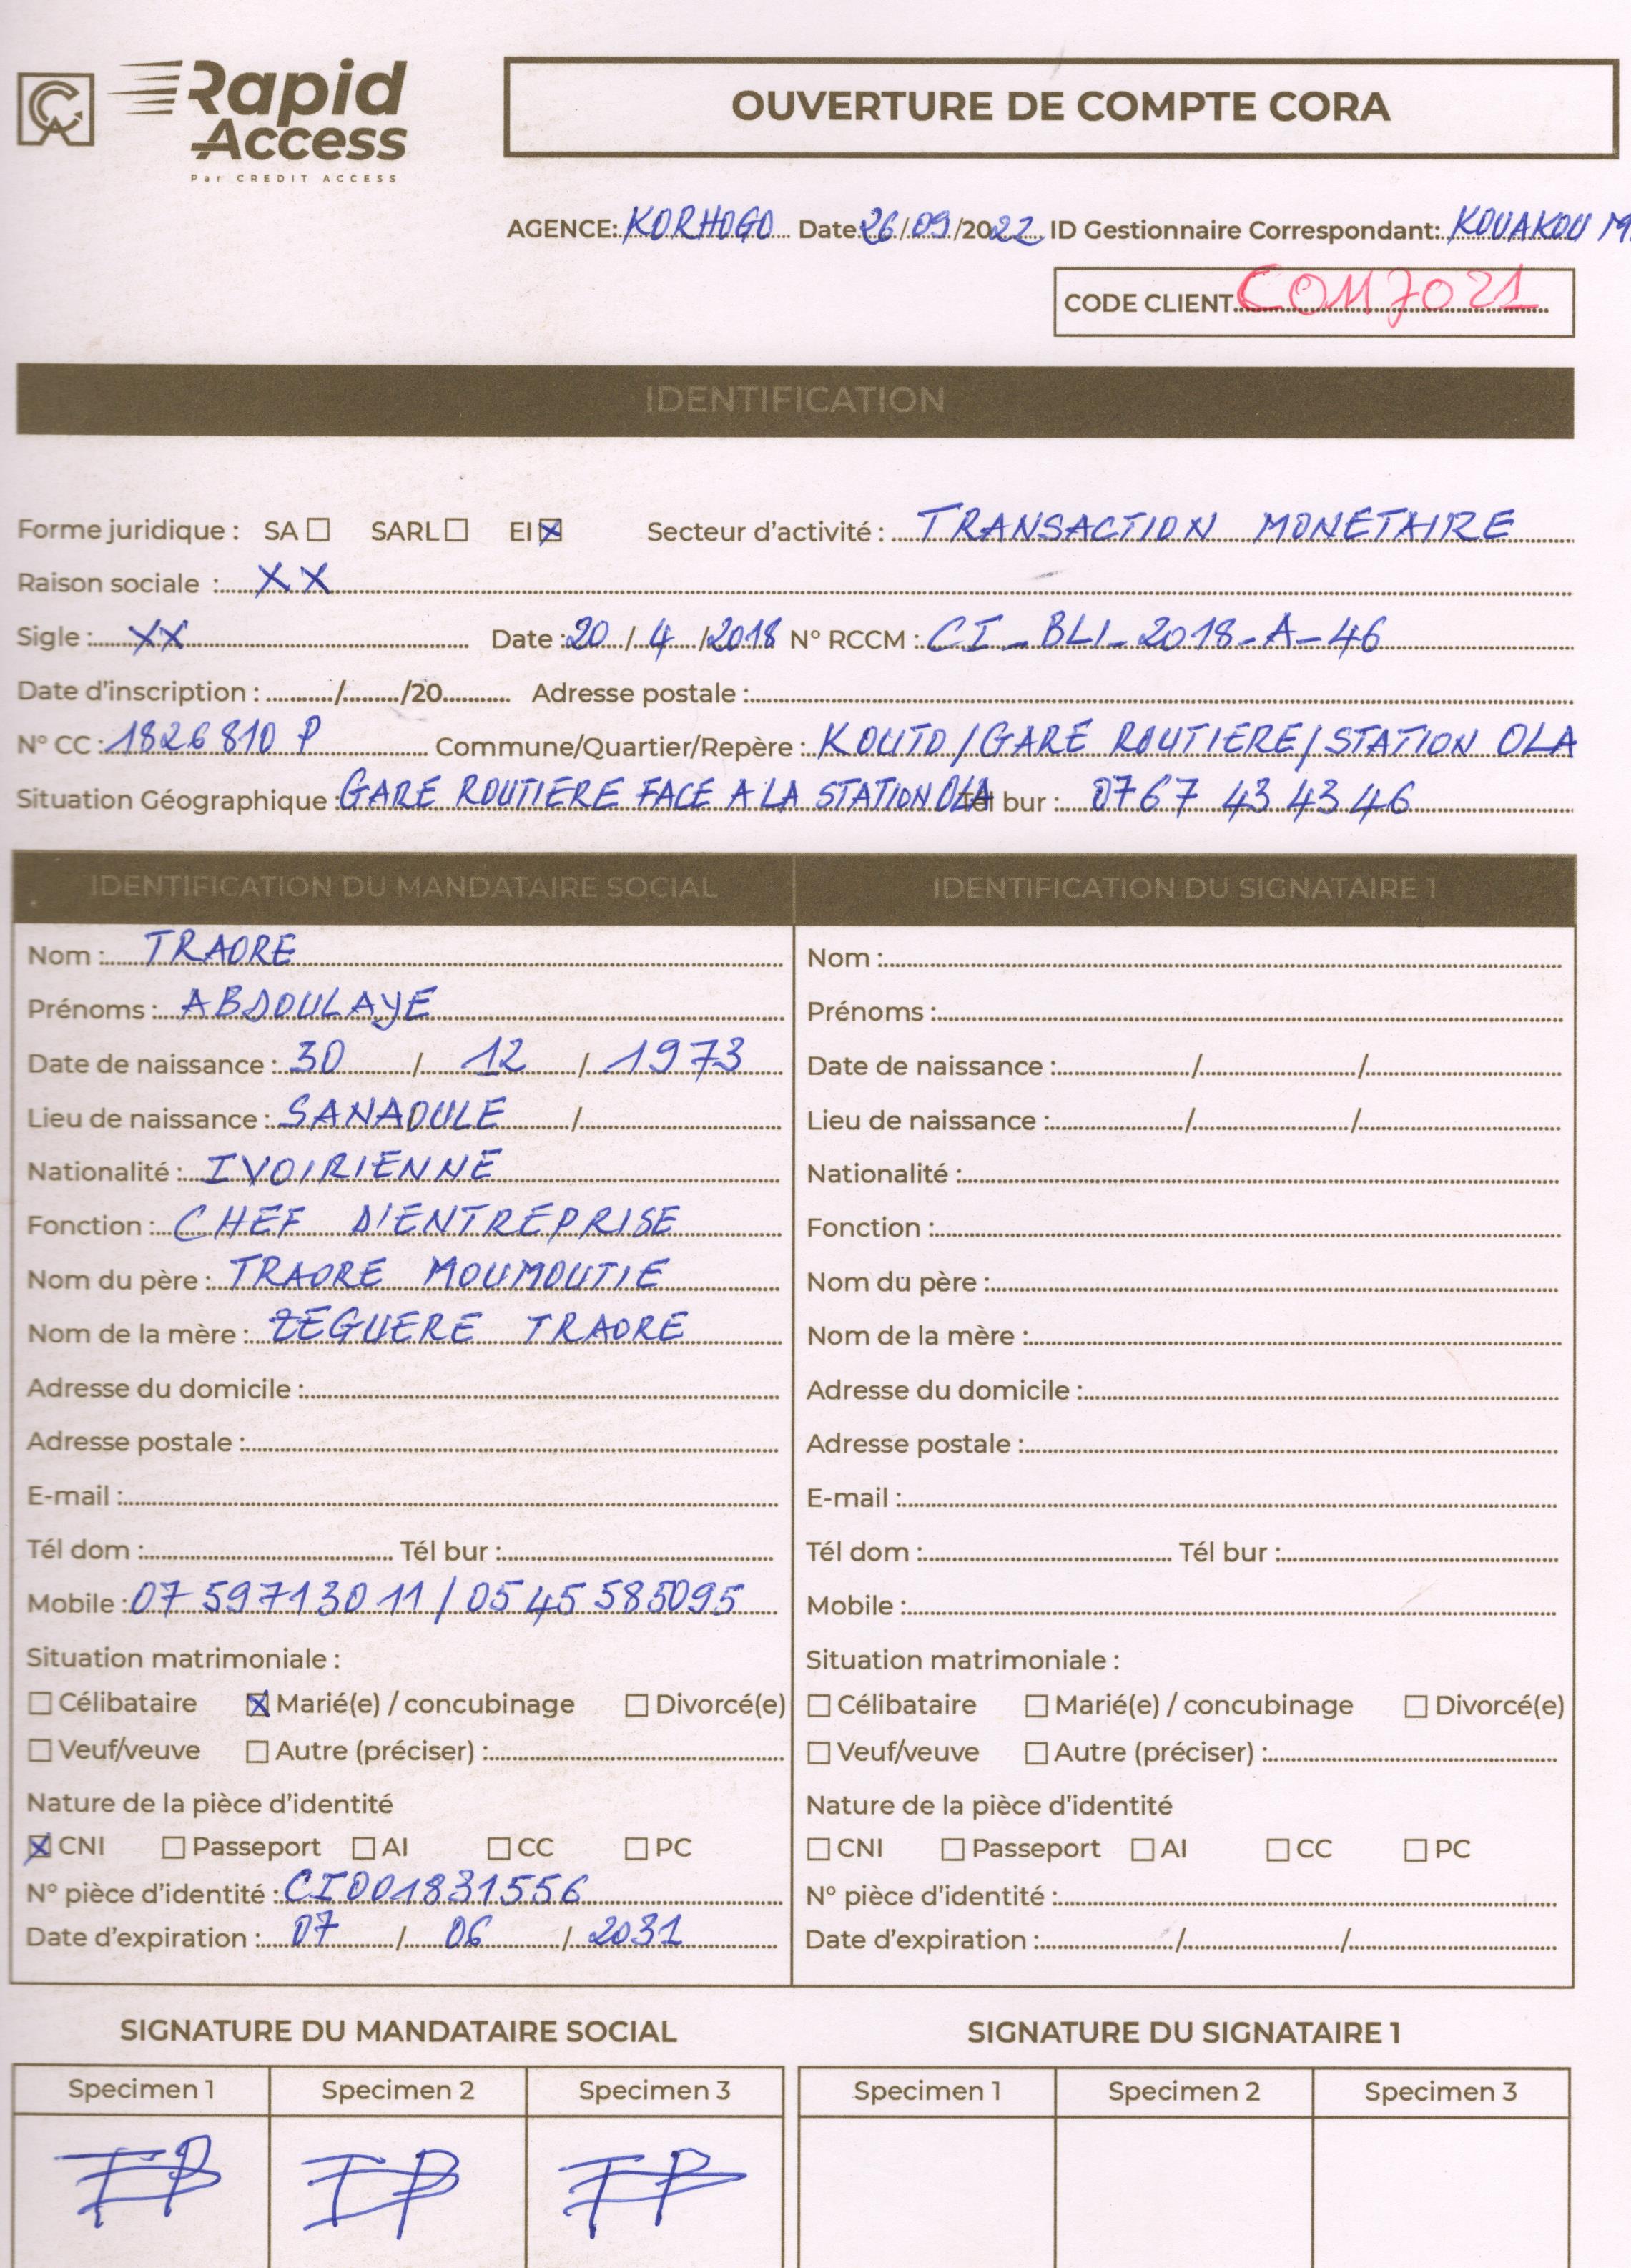 CA Rapid Access
Par CREDIT ACCESS
OUVERTURE DE COMPTE CORA
AGENCE: KORHOGO Date 26/09/2022 ID Gestionnaire Correspondant: KOUAKOU M
CODE CLIENT C0117021
IDENTIFICATION
Forme juridique : SA ☐ SARL ☐ EI ☒ Secteur d'activité : TRANSACTION MONETAIRE
Raison sociale : XX
Sigle : XX Date : 20/4/2018 N° RCCM : CI_BLI_2018-A-46
Date d'inscription : ......../......../20........ Adresse postale :
N° CC : 1826810 P Commune/Quartier/Repère : KOUTO/GARE ROUTIERE/STATION OLA
Situation Géographique : GARE ROUTIERE FACE A LA STATION OLA Tél bur : 0767 43 43 46
IDENTIFICATION DU MANDATAIRE SOCIAL
Nom : TRAORE
Prénoms : ABDOULAYE
Date de naissance : 30 / 12 / 1973
Lieu de naissance : SANADULE /
Nationalité : IVOIRIENNE
Fonction : CHEF D'ENTREPRISE
Nom du père : TRAORE MOUMOUTIE
Nom de la mère : ZEGUERE TRAORE
Adresse du domicile :
Adresse postale :
E-mail :
Tél dom : Tél bur :
Mobile : 07 59713011 / 0545585095
Situation matrimoniale :
☐ Célibataire ☒ Marié(e) / concubinage ☐ Divorcé(e)
☐ Veuf/veuve ☐ Autre (préciser) :
Nature de la pièce d'identité
☒ CNI ☐ Passeport ☐ AI ☐ CC ☐ PC
N° pièce d'identité : CI001831556
Date d'expiration : 07 / 06 / 2031
IDENTIFICATION DU SIGNATAIRE 1
Nom :
Prénoms :
Date de naissance : / /
Lieu de naissance : / /
Nationalité :
Fonction :
Nom du père :
Nom de la mère :
Adresse du domicile :
Adresse postale :
E-mail :
Tél dom : Tél bur :
Mobile :
Situation matrimoniale :
☐ Célibataire ☐ Marié(e) / concubinage ☐ Divorcé(e)
☐ Veuf/veuve ☐ Autre (préciser) :
Nature de la pièce d'identité
☐ CNI ☐ Passeport ☐ AI ☐ CC ☐ PC
N° pièce d'identité :
Date d'expiration : / /
SIGNATURE DU MANDATAIRE SOCIAL
Specimen 1 Specimen 2 Specimen 3
SIGNATURE DU SIGNATAIRE 1
Specimen 1 Specimen 2 Specimen 3